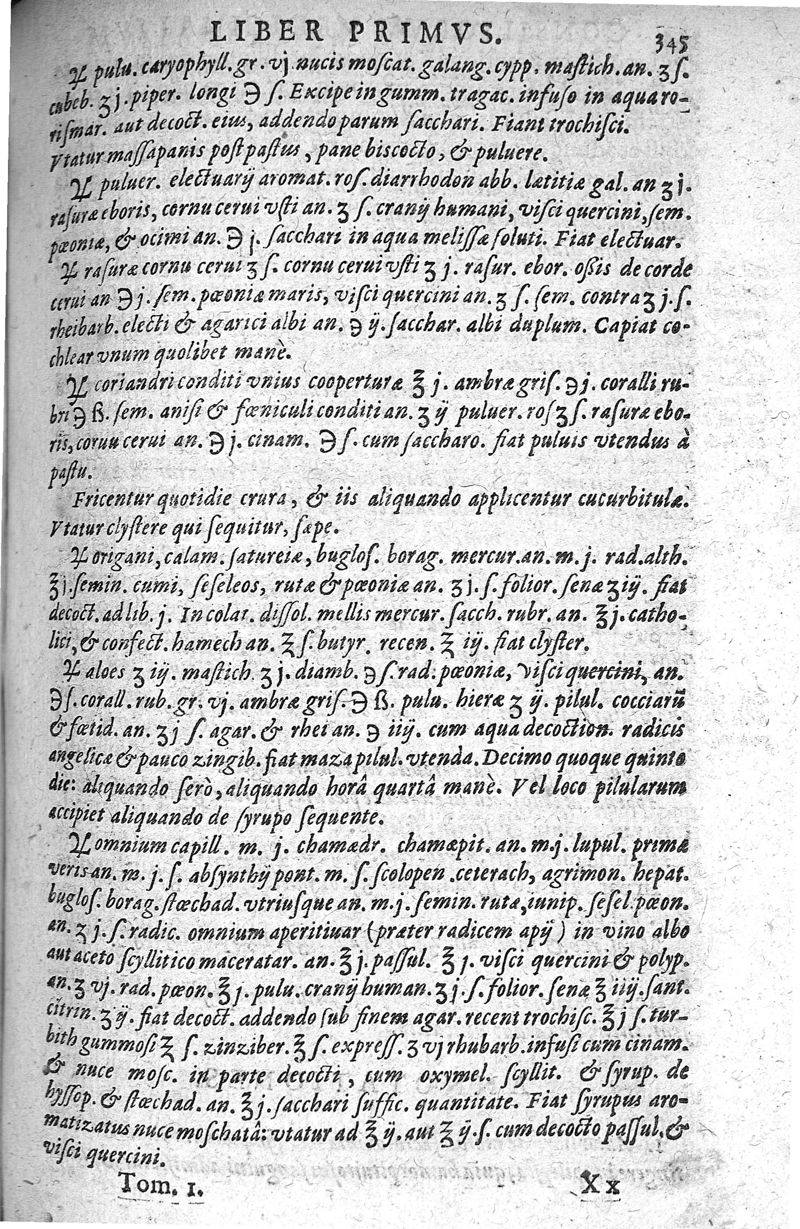 LIBER PRIMVS. 345
℞ pulu. caryophyll. gr. vj. nucis moscat. galang. cypp. mastich. an. ʒ ſ.
cubeb. ʒ j. piper. longi ℈ ſ. Excipe in gumm. tragac. infuso in aqua ro-
rismar. aut decoct. eius, addendo parum sacchari. Fiant trochisci.
Vtatur massapanis post pastus, pane biscocto, & puluere.
℞ puluer. electuarij aromat. ros. diarrhodon abb. lætitiæ gal. an ʒ j.
rasuræ eboris, cornu cerui vsti an. ʒ ſ. cranij humani, visci quercini, sem.
pœoniæ, & ocimi an. ℈ j. sacchari in aqua melissæ soluti. Fiat electuar.
℞ rasuræ cornu cerui ʒ ſ. cornu cerui vsti ʒ j. rasur. ebor. ossis de corde
cerui an ℈ j. sem. pœoniæ maris, visci quercini an. ʒ ſ. sem. contra ʒ j. ſ.
rheibarb. electi & agarici albi an. ℈ ij. sacchar. albi duplum. Capiat co-
chlear vnum quolibet manè.
℞ coriandri conditi vnius cooperturæ ℥ j. ambræ gris. ℈ j. coralli ru-
bri ℈ ß. sem. anisi & fœniculi conditi an. ʒ ij puluer. ros ʒ ſ. rasuræ ebo-
ris, cornu cerui an. ℈ j. cinam. ℈ ſ. cum saccharo. fiat puluis vtendus à
pastu.
Fricentur quotidie crura, & iis aliquando applicentur cucurbitulæ.
Vtatur clystere qui sequitur, sæpe.
℞ origani, calam. satureiæ, buglos. borag. mercur. an. m. j. rad. alth.
℥ j. semin. cumi, seseleos, rutæ & pœoniæ an. ʒ j. ſ. folior. senæ ʒ iij. fiat
decoct. ad lib. j. In colat. dissol. mellis mercur. sacch. rubr. an. ℥ j. catho-
lici, & confect. hamech an. ℥ ſ. butyr. recen. ℥ iij. fiat clyster.
℞ aloes ʒ iij. mastich. ʒ j. diamb. ℈ ſ. rad. pœoniæ, visci quercini, an.
℈ ſ. corall. rub. gr. vj. ambræ gris. ℈ ß. pulu. hieræ ʒ ij. pilul. cocciarū
& fœtid. an. ʒ j ſ. agar. & rhei an. ℈ iiij. cum aqua decoction. radicis
angelicæ & pauco zingib. fiat maza pilul. vtenda. Decimo quoque quinto
die: aliquando serò, aliquando horâ quartâ manè. Vel loco pilularum
accipiet aliquando de syrupo sequente.
℞ omnium capill. m. j. chamædr. chamæpit. an. m. j. lupul. primæ
veris an. m. j. ſ. absynthij pont. m. ſ. scolopen. ceterach, agrimon. hepat.
buglos. borag. stœchad. vtriusque an. m. j. semin. rutæ, iunip. sesel. pœon.
an. ʒ j. ſ. radic. omnium aperitiuar (præter radicem apij) in vino albo
aut aceto scyllitico maceratar. an. ℥ j. passul. ℥ j. visci quercini & polyp.
an. ʒ vj. rad. pœon. ℥ j. pulu. cranij human. ʒ j. ſ. folior. senæ ℥ iiij. sant.
citrin. ʒ ij. fiat decoct. addendo sub finem agar. recent trochisc. ℥ j ſ. tur-
bith gummosi ℥ ſ. zinziber. ℥ ſ. express. ʒ vj rhubarb. infusi cum cinam.
& nuce mosc. in parte decocti, cum oxymel. scyllit. & syrup. de
hyssop. & stœchad. an. ℥ j. sacchari suffic. quantitate. Fiat syrupus aro-
matizatus nuce moschatâ: vtatur ad ℥ ij. aut ℥ ij. ſ. cum decocto passul. &
visci quercini.
Tom. 1. Xx